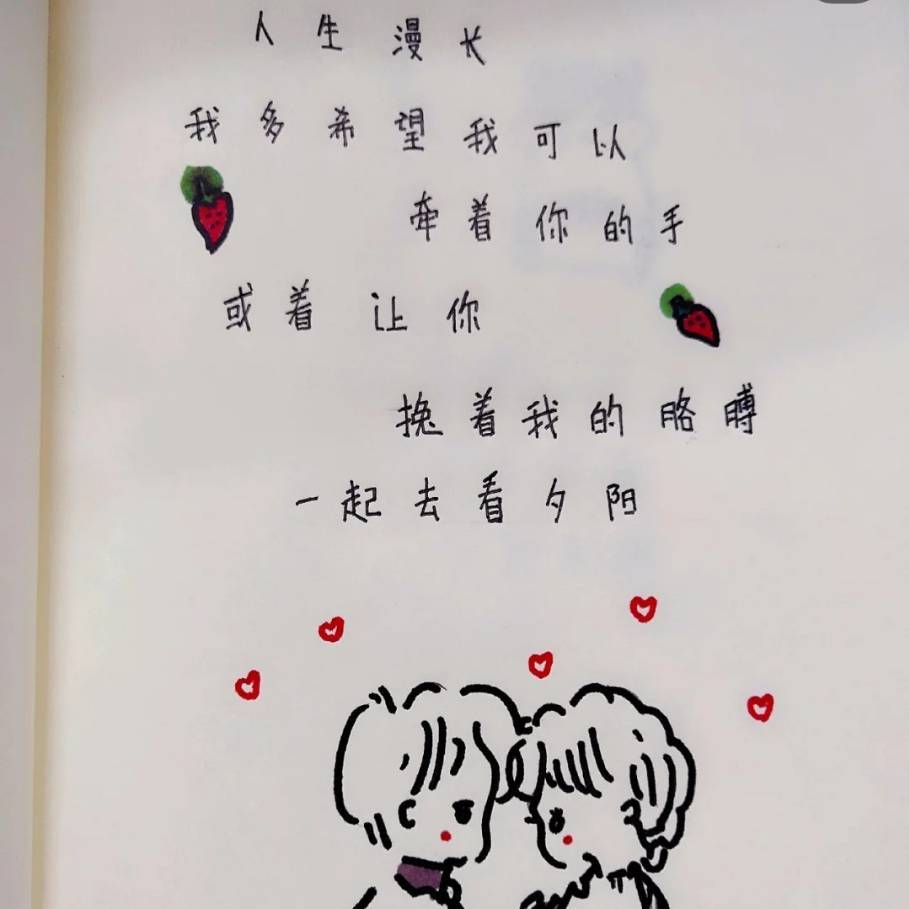 人生漫长
我多希望我可以
牵着你的手
或着让你
挽着我的胳膊
一起去看夕阳